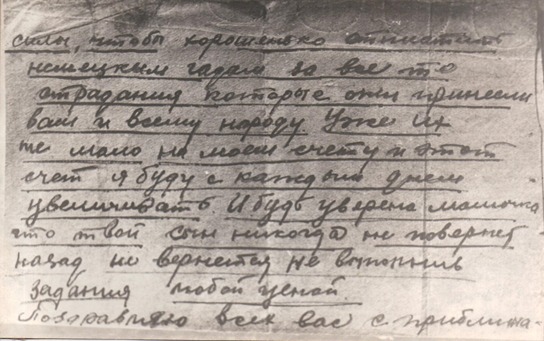 силы, чтобы хорошенько отплатить
немецким гадам за все те
страдания которые они принесли
вам и всему народу. Уже их
не мало на моем счету и этот
счет я буду с каждым днем
увеличивать. И будь уверена мамочка
что твой сын никогда не повернет
назад не вернется не выполнив
задания любой ценой.
Поздравляю всех вас с приближа-